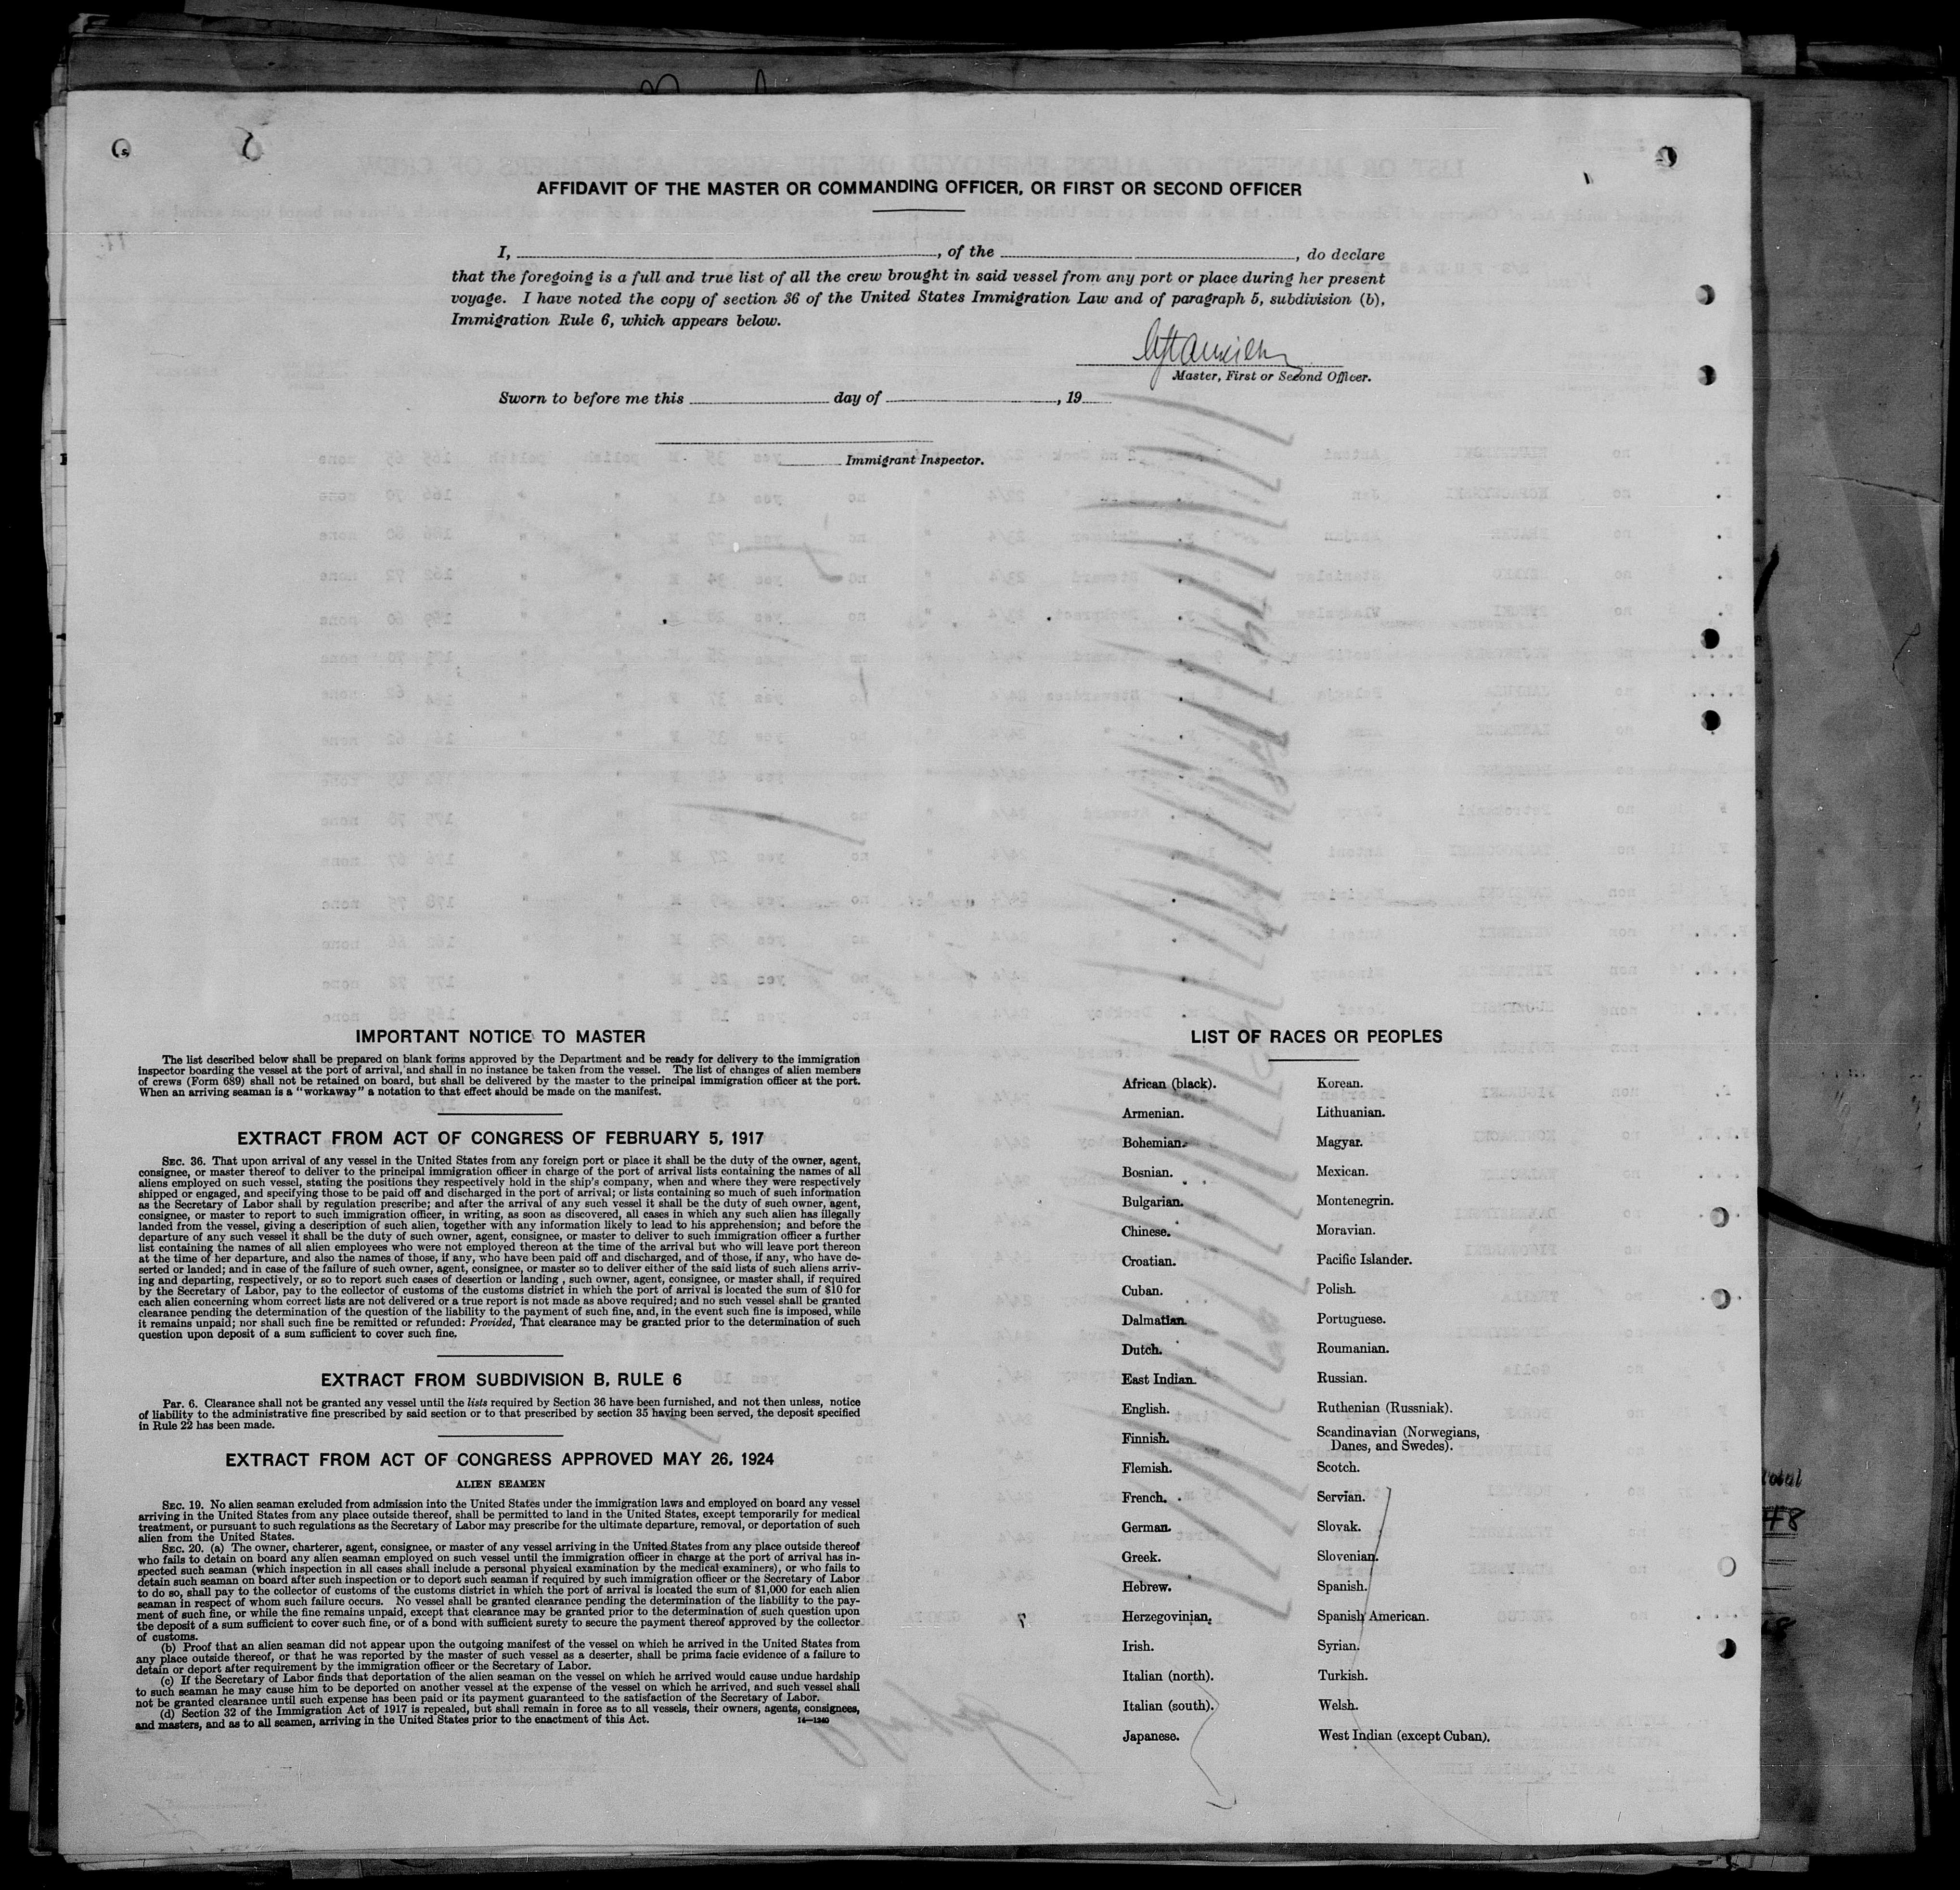 AFFIDAVIT OF THE MASTER OR COMMANDING OFFICER, OR FIRST OR SECOND OFFICER
I, , of the , do declare
that the foregoing is a full and true list of all the crew brought in said vessel from any port or place during her present
voyage. I have noted the copy of section 36 of the United States Immigration Law and of paragraph 5, subdivision (b),
Immigration Rule 6, which appears below.
Master, First or Second Officer.
Sworn to before me this day of , 19
Immigrant Inspector.
IMPORTANT NOTICE TO MASTER
The list described below shall be prepared on blank forms approved by the Department and be ready for delivery to the immigration
inspector boarding the vessel at the port of arrival, and shall in no instance be taken from the vessel. The list of changes of alien members
of crews (Form 689) shall not be retained on board, but shall be delivered by the master to the principal immigration officer at the port.
When an arriving seaman is a "workaway" a notation to that effect should be made on the manifest.
EXTRACT FROM ACT OF CONGRESS OF FEBRUARY 5, 1917
SEC. 36. That upon arrival of any vessel in the United States from any foreign port or place it shall be the duty of the owner, agent,
consignee, or master thereof to deliver to the principal immigration officer in charge of the port of arrival lists containing the names of all
aliens employed on such vessel, stating the positions they respectively hold in the ship's company, when and where they were respectively
shipped or engaged, and specifying those to be paid off and discharged in the port of arrival; or lists containing so much of such information
as the Secretary of Labor shall by regulation prescribe; and after the arrival of any such vessel it shall be the duty of such owner, agent,
consignee, or master to report to such immigration officer, in writing, as soon as discovered, all cases in which any such alien has illegally
landed from the vessel, giving a description of such alien, together with any information likely to lead to his apprehension; and before the
departure of any such vessel it shall be the duty of such owner, agent, consignee, or master to deliver to such immigration officer a further
list containing the names of all alien employees who were not employed thereon at the time of the arrival but who will leave port thereon
at the time of her departure, and also the names of those, if any, who have been paid off and discharged, and of those, if any, who have de-
serted or landed; and in case of the failure of such owner, agent, consignee, or master so to deliver either of the said lists of such aliens arriv-
ing and departing, respectively, or so to report such cases of desertion or landing, such owner, agent, consignee, or master shall, if required
by the Secretary of Labor, pay to the collector of customs of the customs district in which the port of arrival is located the sum of $10 for
each alien concerning whom correct lists are not delivered or a true report is not made as above required; and no such vessel shall be granted
clearance pending the determination of the question of the liability to the payment of such fine, and, in the event such fine is imposed, while
it remains unpaid; nor shall such fine be remitted or refunded: Provided, That clearance may be granted prior to the determination of such
question upon deposit of a sum sufficient to cover such fine.
EXTRACT FROM SUBDIVISION B, RULE 6
Par. 6. Clearance shall not be granted any vessel until the lists required by Section 36 have been furnished, and not then unless, notice
of liability to the administrative fine prescribed by said section or to that prescribed by section 35 having been served, the deposit specified
in Rule 22 has been made.
EXTRACT FROM ACT OF CONGRESS APPROVED MAY 26, 1924
ALIEN SEAMEN
SEC. 19. No alien seaman excluded from admission into the United States under the immigration laws and employed on board any vessel
arriving in the United States from any place outside thereof, shall be permitted to land in the United States, except temporarily for medical
treatment, or pursuant to such regulations as the Secretary of Labor may prescribe for the ultimate departure, removal, or deportation of such
alien from the United States.
SEC. 20. (a) The owner, charterer, agent, consignee, or master of any vessel arriving in the United States from any place outside thereof
who fails to detain on board any alien seaman employed on such vessel until the immigration officer in charge at the port of arrival has in-
spected such seaman (which inspection in all cases shall include a personal physical examination by the medical examiners), or who fails to
detain such seaman on board after such inspection or to deport such seaman if required by such immigration officer or the Secretary of Labor
to do so, shall pay to the collector of customs of the customs district in which the port of arrival is located the sum of $1,000 for each alien
seaman in respect of whom such failure occurs. No vessel shall be granted clearance pending the determination of the liability to the pay-
ment of such fine, or while the fine remains unpaid, except that clearance may be granted prior to the determination of such question upon
the deposit of a sum sufficient to cover such fine, or of a bond with sufficient surety to secure the payment thereof approved by the collector
of customs.
(b) Proof that an alien seaman did not appear upon the outgoing manifest of the vessel on which he arrived in the United States from
any place outside thereof, or that he was reported by the master of such vessel as a deserter, shall be prima facie evidence of a failure to
detain or deport after requirement by the immigration officer or the Secretary of Labor.
(c) If the Secretary of Labor finds that deportation of the alien seaman on the vessel on which he arrived would cause undue hardship
to such seaman he may cause him to be deported on another vessel at the expense of the vessel on which he arrived, and such vessel shall
not be granted clearance until such expense has been paid or its payment guaranteed to the satisfaction of the Secretary of Labor.
(d) Section 32 of the Immigration Act of 1917 is repealed, but shall remain in force as to all vessels, their owners, agents, consignees,
and masters, and as to all seamen, arriving in the United States prior to the enactment of this Act.
14—1240
LIST OF RACES OR PEOPLES
African (black).
Armenian.
Bohemian.
Bosnian.
Bulgarian.
Chinese.
Croatian.
Cuban.
Dalmatian.
Dutch.
East Indian.
English.
Finnish.
Flemish.
French.
German.
Greek.
Hebrew.
Herzegovinian.
Irish.
Italian (north).
Italian (south).
Japanese.
Korean.
Lithuanian.
Magyar.
Mexican.
Montenegrin.
Moravian.
Pacific Islander.
Polish.
Portuguese.
Roumanian.
Russian.
Ruthenian (Russniak).
Scandinavian (Norwegians,
Danes, and Swedes).
Scotch.
Servian.
Slovak.
Slovenian.
Spanish.
Spanish American.
Syrian.
Turkish.
Welsh.
West Indian (except Cuban).